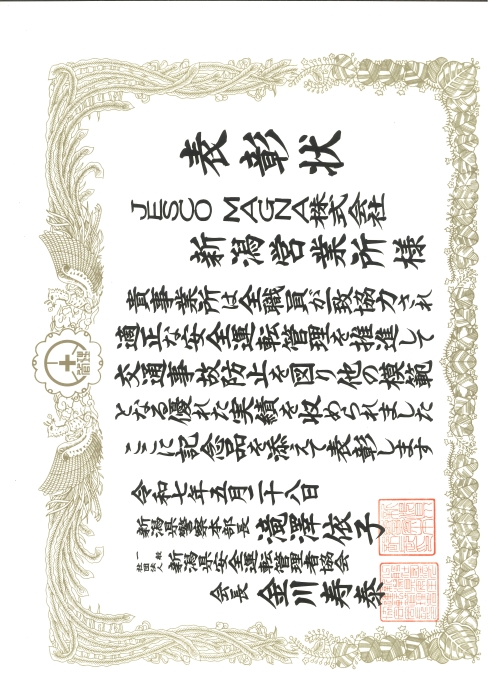 表彰状
JESCO MAGNA株式会社
新潟営業所様
貴事業所は全職員が一致協力され
適正な安全運転管理を推進して
交通事故防止を図り他の模範
となる優れた実績を収められました
ここに記念品を添えて表彰します
令和七年五月二十八日
新潟県警察本部長 滝澤依子
一般社団法人 新潟県安全運転管理者協会
会長 金川寿泰